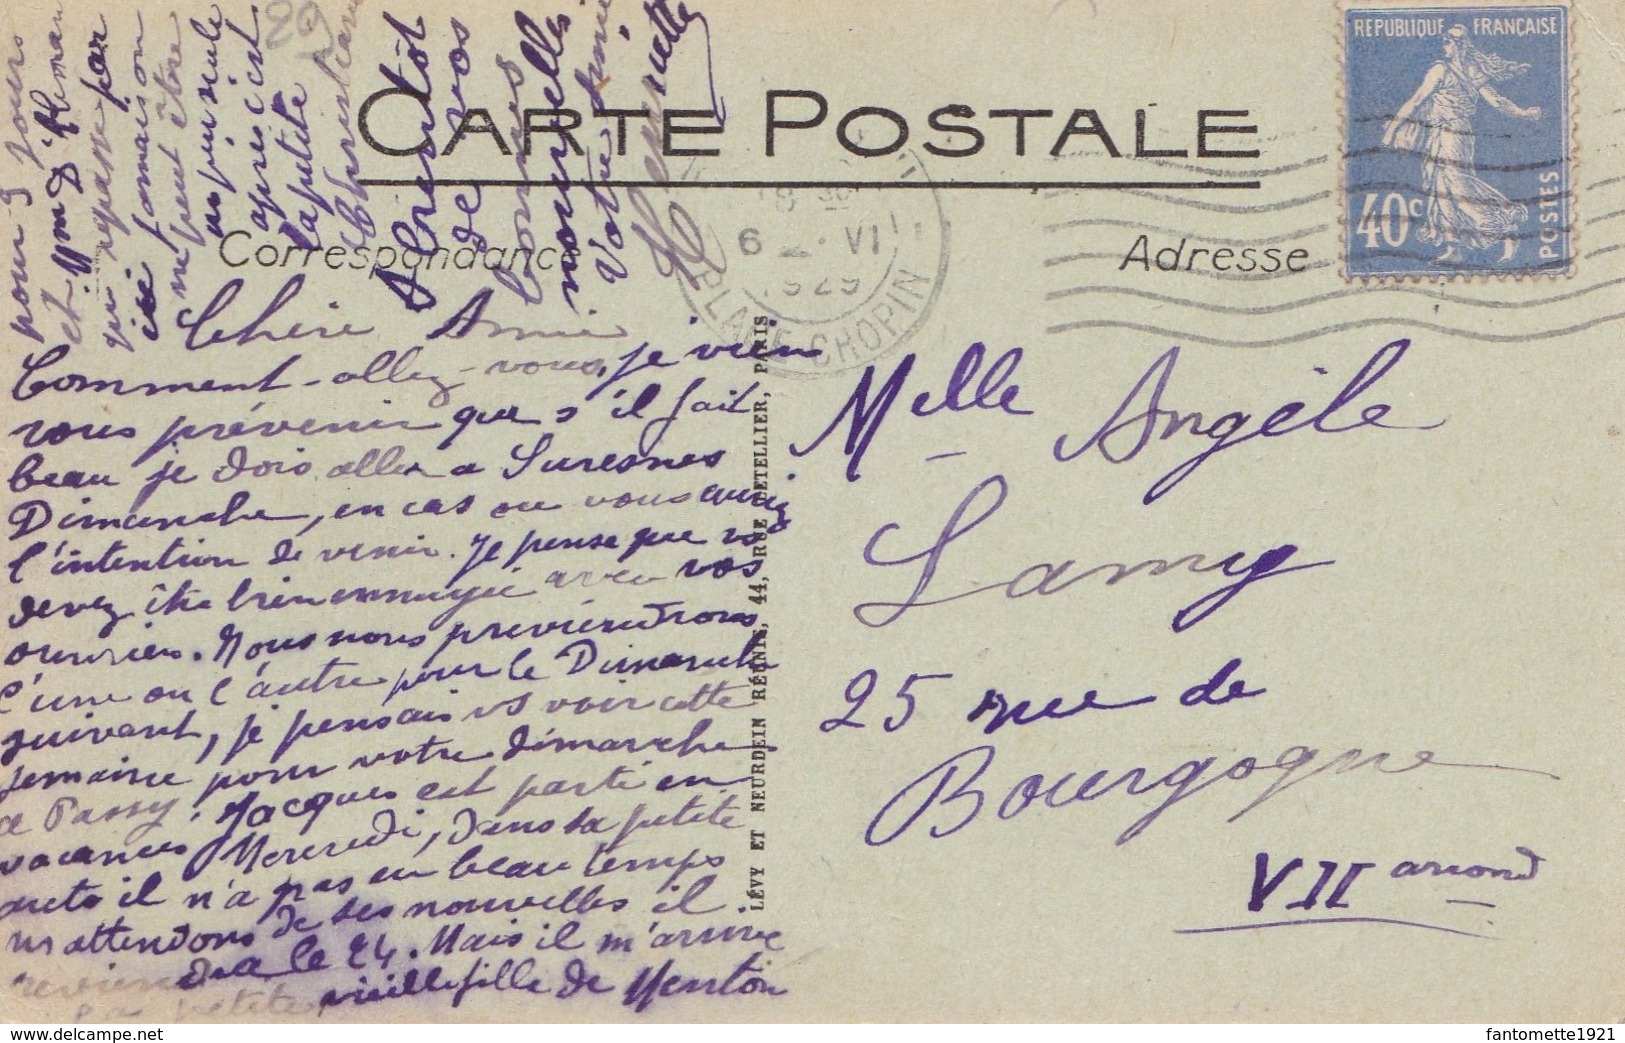 CARTE POSTALE
Correspondance
Adresse
REPUBLIQUE FRANÇAISE
40c
POSTES
6 - VI
1929
PLACE CHOPIN
29
Chère Amie
Comment-allez-vous, je vien
vous prévenir que s'il fait
beau je dois aller a Suresnes
Dimanche, en cas ou vous auriez
l'intention de venir. Je pense que vs
devez être bien ennuyée avec vos
ouvriers. Nous nous previendrons
l'une ou l'autre pour le Dimanche
suivant, je pensais vs voir cette
semaine pour votre dimanche
a Passy. Jacques est parti en
vacances Mercredi, dans sa petite
auto il n'a pas eu beau temps
ns attendons de ses nouvelles il
reviendra le 24. Mais il m'arrive
la petite vieille fille de Menton
pour 3 jours
et Mme D'
qui repasse par
ici, la maison
ne peut être
un peu seule
après c'est
la petite
Christiane
A bientôt
de vos
bonnes
nouvelles
Votre Amie
Henriette
LÉVY ET NEURDEIN RÉUNIS, 44, RUE LETELLIER, PARIS
Melle Angèle
Lamy
25 rue de
Bourgogne
VII arrond
fantomette1921
www.delcampe.net